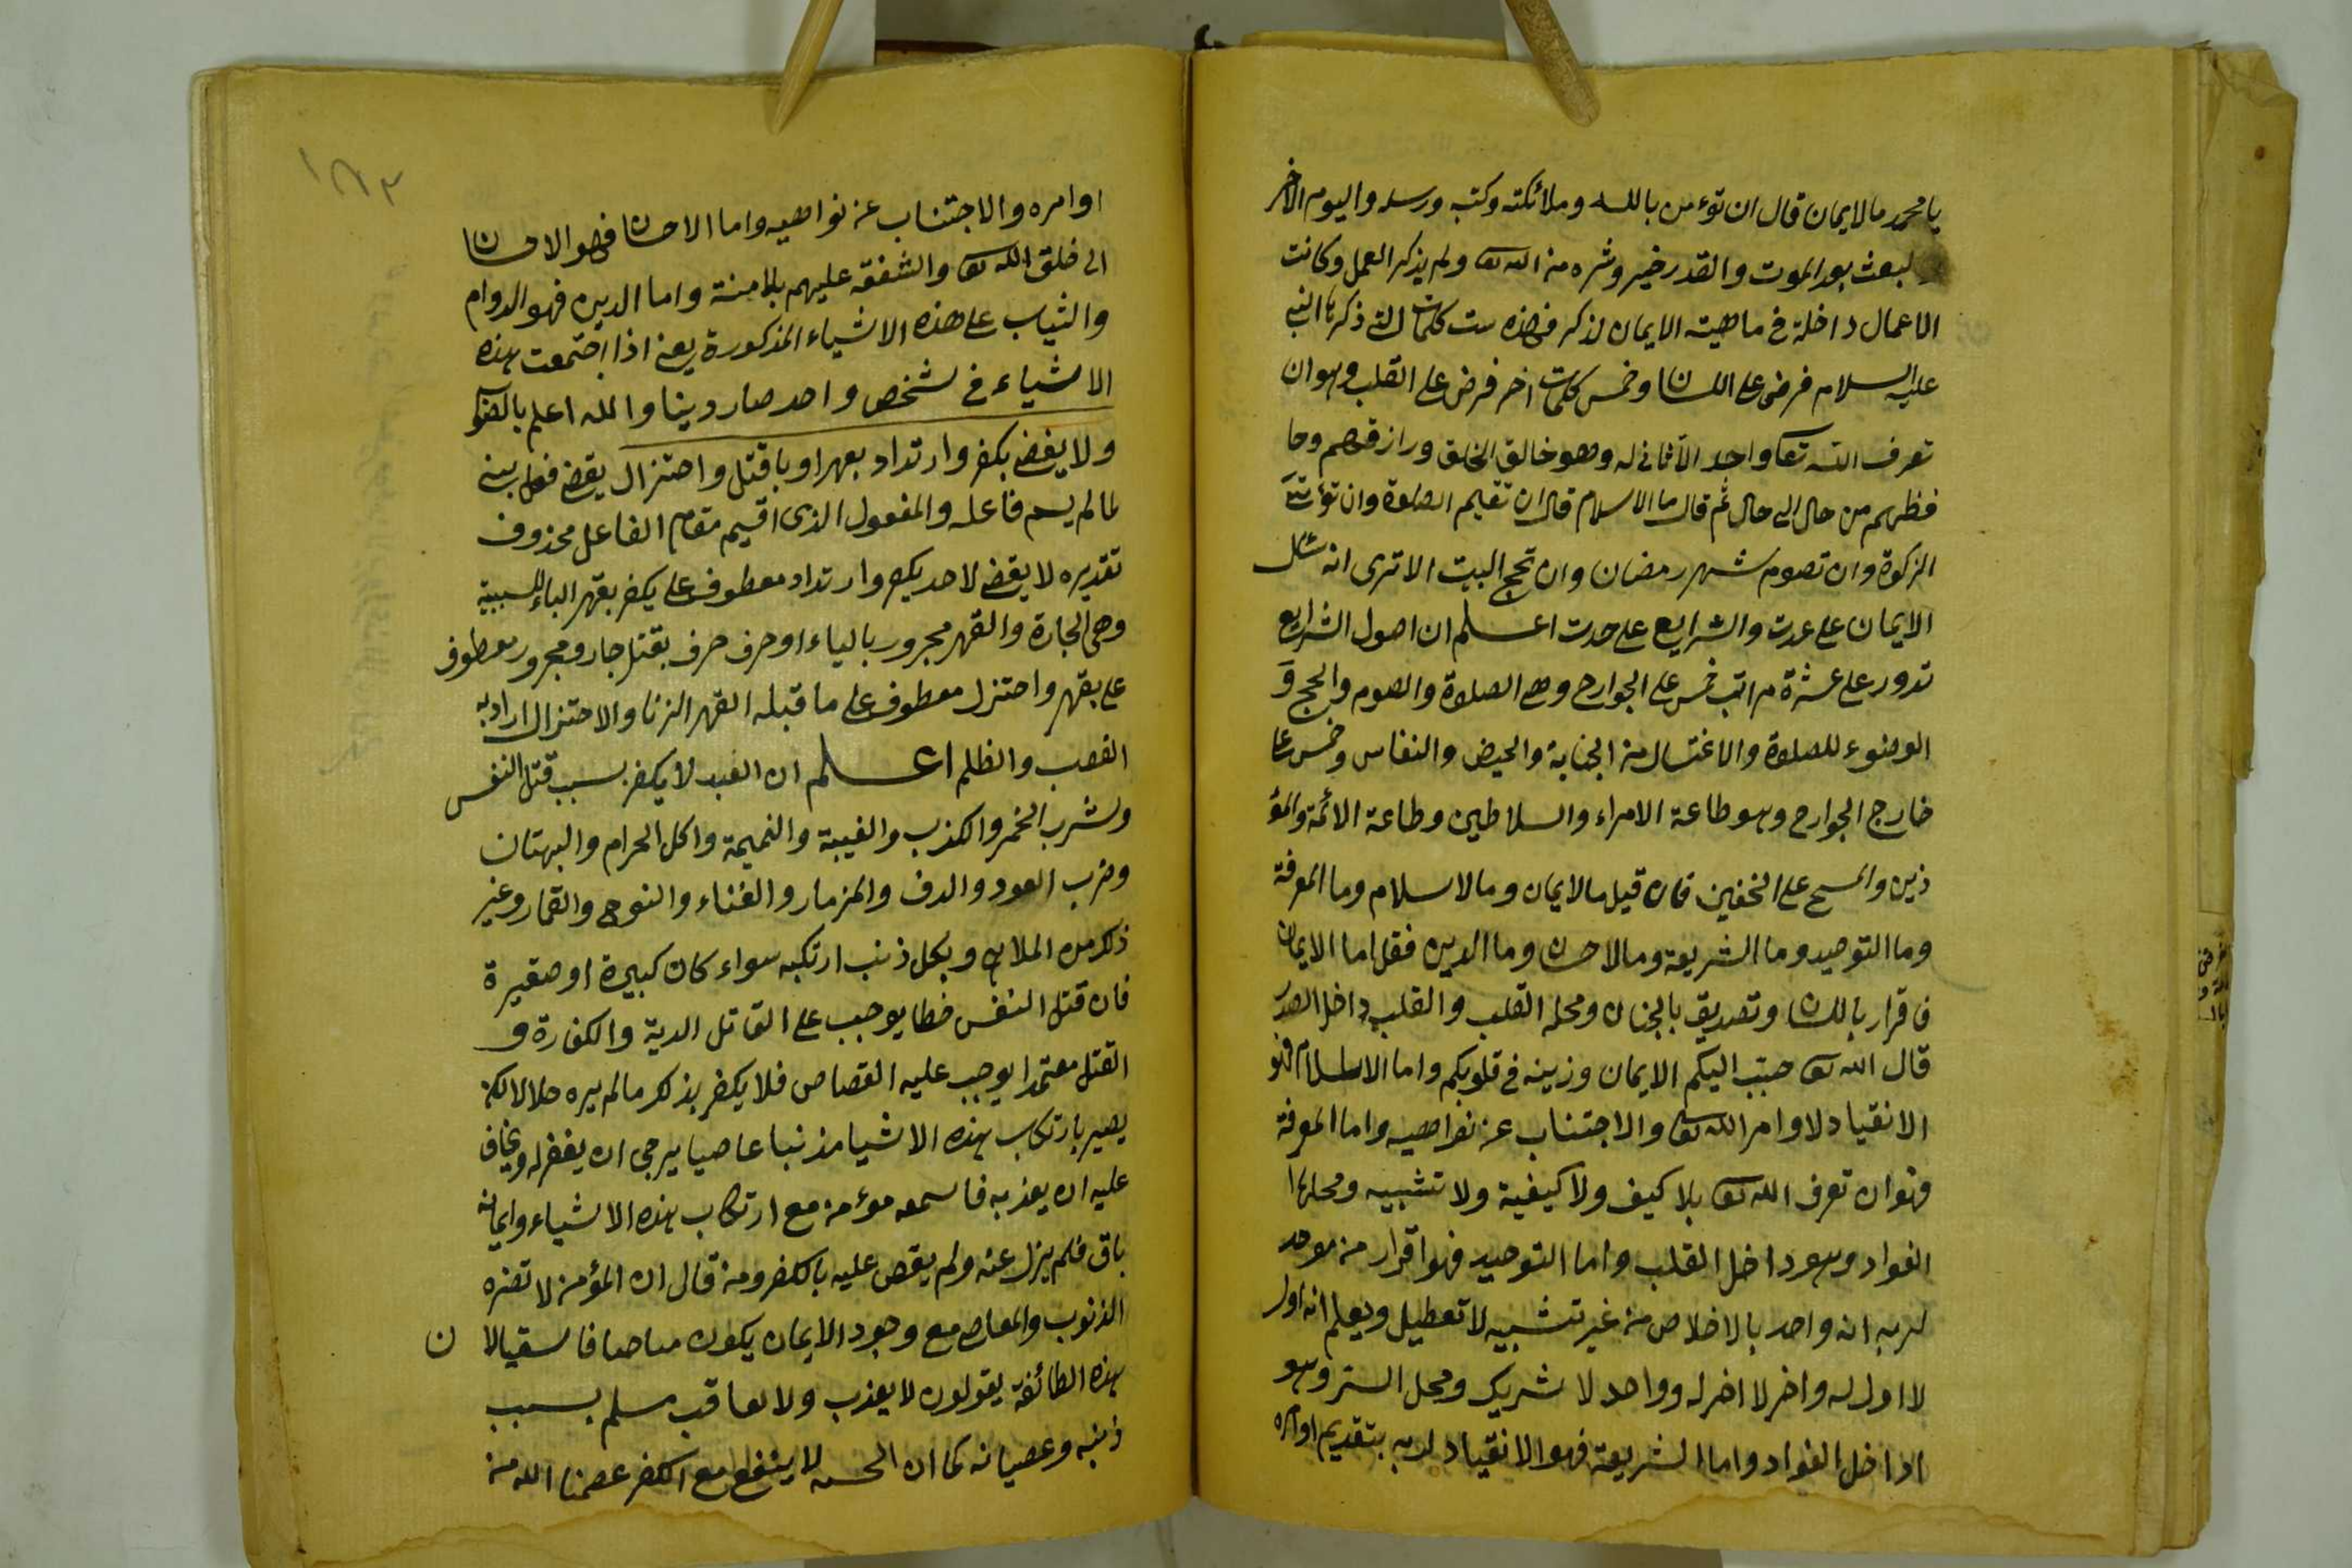 يا محمد مالايمان قال ان توءمن بالله وملائكته وكتبه ورسله واليوم الاخر
لبعث بعد الموت والقدر خيره وشره من الله تعا ولم يذكر العمل وكانت
الاعمال داخلة في ماهية الايمان لذكر فهذه ست كلمات التي ذكرها النبي
عليه السلام فرض على اللسان وخمس كلمات اخر فرض على القلب وهو ان
تعرف الله تعا واحد لا ثاني له وهو خالق الخلق ورازقهم وحا
فظهم من حال الى حال ثم قال ما الاسلام قال ان تقيم الصلوة وان تؤتى
الزكوة وان تصوم شهر رمضان وان تحج البيت الا ترى انه سئل
الايمان على حدت والشرايع على حدت اعلم ان اصول الشرايع
تدور على عشرة مراتب خمس على الجوارح وهي الصلاة والصوم والحج و
الوضوء للصلوة والاغتسال من الجنابة والحيض والنفاس وخمس على
خارج الجوارح وهو طاعة الامراء والسلاطين وطاعة الائمة والمؤ
ذنين والمسح على الخفين فان قيل مالايمان ومالاسلام وما المعرفة
وما التوحيد وما الشريعة ومالاحسان وما الدين فقل اما الايمان
فاقرار باللسان وتصديق بالجنان ومحله القلب والقلب داخل الصدر
قال الله تعا حبب اليكم الايمان وزينه في قلوبكم واما الاسلام فهو
الانقياد لاوامر الله تعا والاجتناب عن نواهيه واما المعرفة
فهو ان تعرف الله تعا بلا كيف ولا كيفية ولا تشبيه ومحلها
الفواد وهو داخل القلب واما التوحيد فهو اقرار من موحد
لربه انه واحد بالاخلاص من غير تشبيه لا تعطيل ويعلم انه اول
لا اول له واخر لا اخر له وواحد لا شريك ومحل الستر وهو
اداخل الفواد واما الشريعة فهو الانقياد لربه بتقديم اوامره
١٨٣
اوامره والاجتناب عن نواهيه واما الاحسان فهو الاحسان
الى خلق الله تعا والشفقة عليهم بلا منة واما الدين فهو الدوام
والثبات على هذه الاشياء المذكورة يعني اذا اجتمعت هذه
الاشياء في شخص واحد صار دينا والله اعلم بالصواب
ولا يقضى بكفر وارتداد بعهر او بقتل واختزال يقضى فعل بني
لما لم يسم فاعله والمفعول الذى اقيم مقام الفاعل محذوف
تقديره لا يقضى لاحد بكفر وارتداد معطوف على بكفر بقهر الباء للسببية
وهي الجارة والقهر مجرور بالباء او حرف حرف بقتل جار ومجرور معطوف
على بقهر واختزل معطوف على ما قبله القهر الزنا والاختزال اراد به
الغصب والظلم اعلم ان العبد لا يكفر بسبب قتل النفس
وشرب الخمر والكذب والغيبة والنميمة واكل الحرام والبهتان
وضرب العود والدف والمزمار والغناء والنوح والقمار وغير
ذلك من الملاهي وبكل ذنب ارتكبه سواء كان كبيرة او صغيرة
فان قتل النفس خطا يوجب على القاتل الدية والكفارة و
القتل معتمدا يوجب عليه القصاص فلا يكفر بذلك مالم يره حلالا لكن
يصير بارتكاب هذه الاشيا مذنبا عاصيا يرجى ان يغفر له ويخاف
عليه ان يعذبه فاسمه موءمن مع ارتكاب هذه الاشياء وايمانه
باق فلم يزل عنه ولم يقض عليه بالكفر ومن قال ان المؤمن لا تضره
الذنوب والمعاصي مع وجود الايمان يكون فاسقيالا ن
هذه الطائفة يقولون لا يعذب ولا يعاقب مسلم بسبب
ذنبه وعصيانه كما ان الحسنة لا ينفع مع الكفر عصمنا الله من